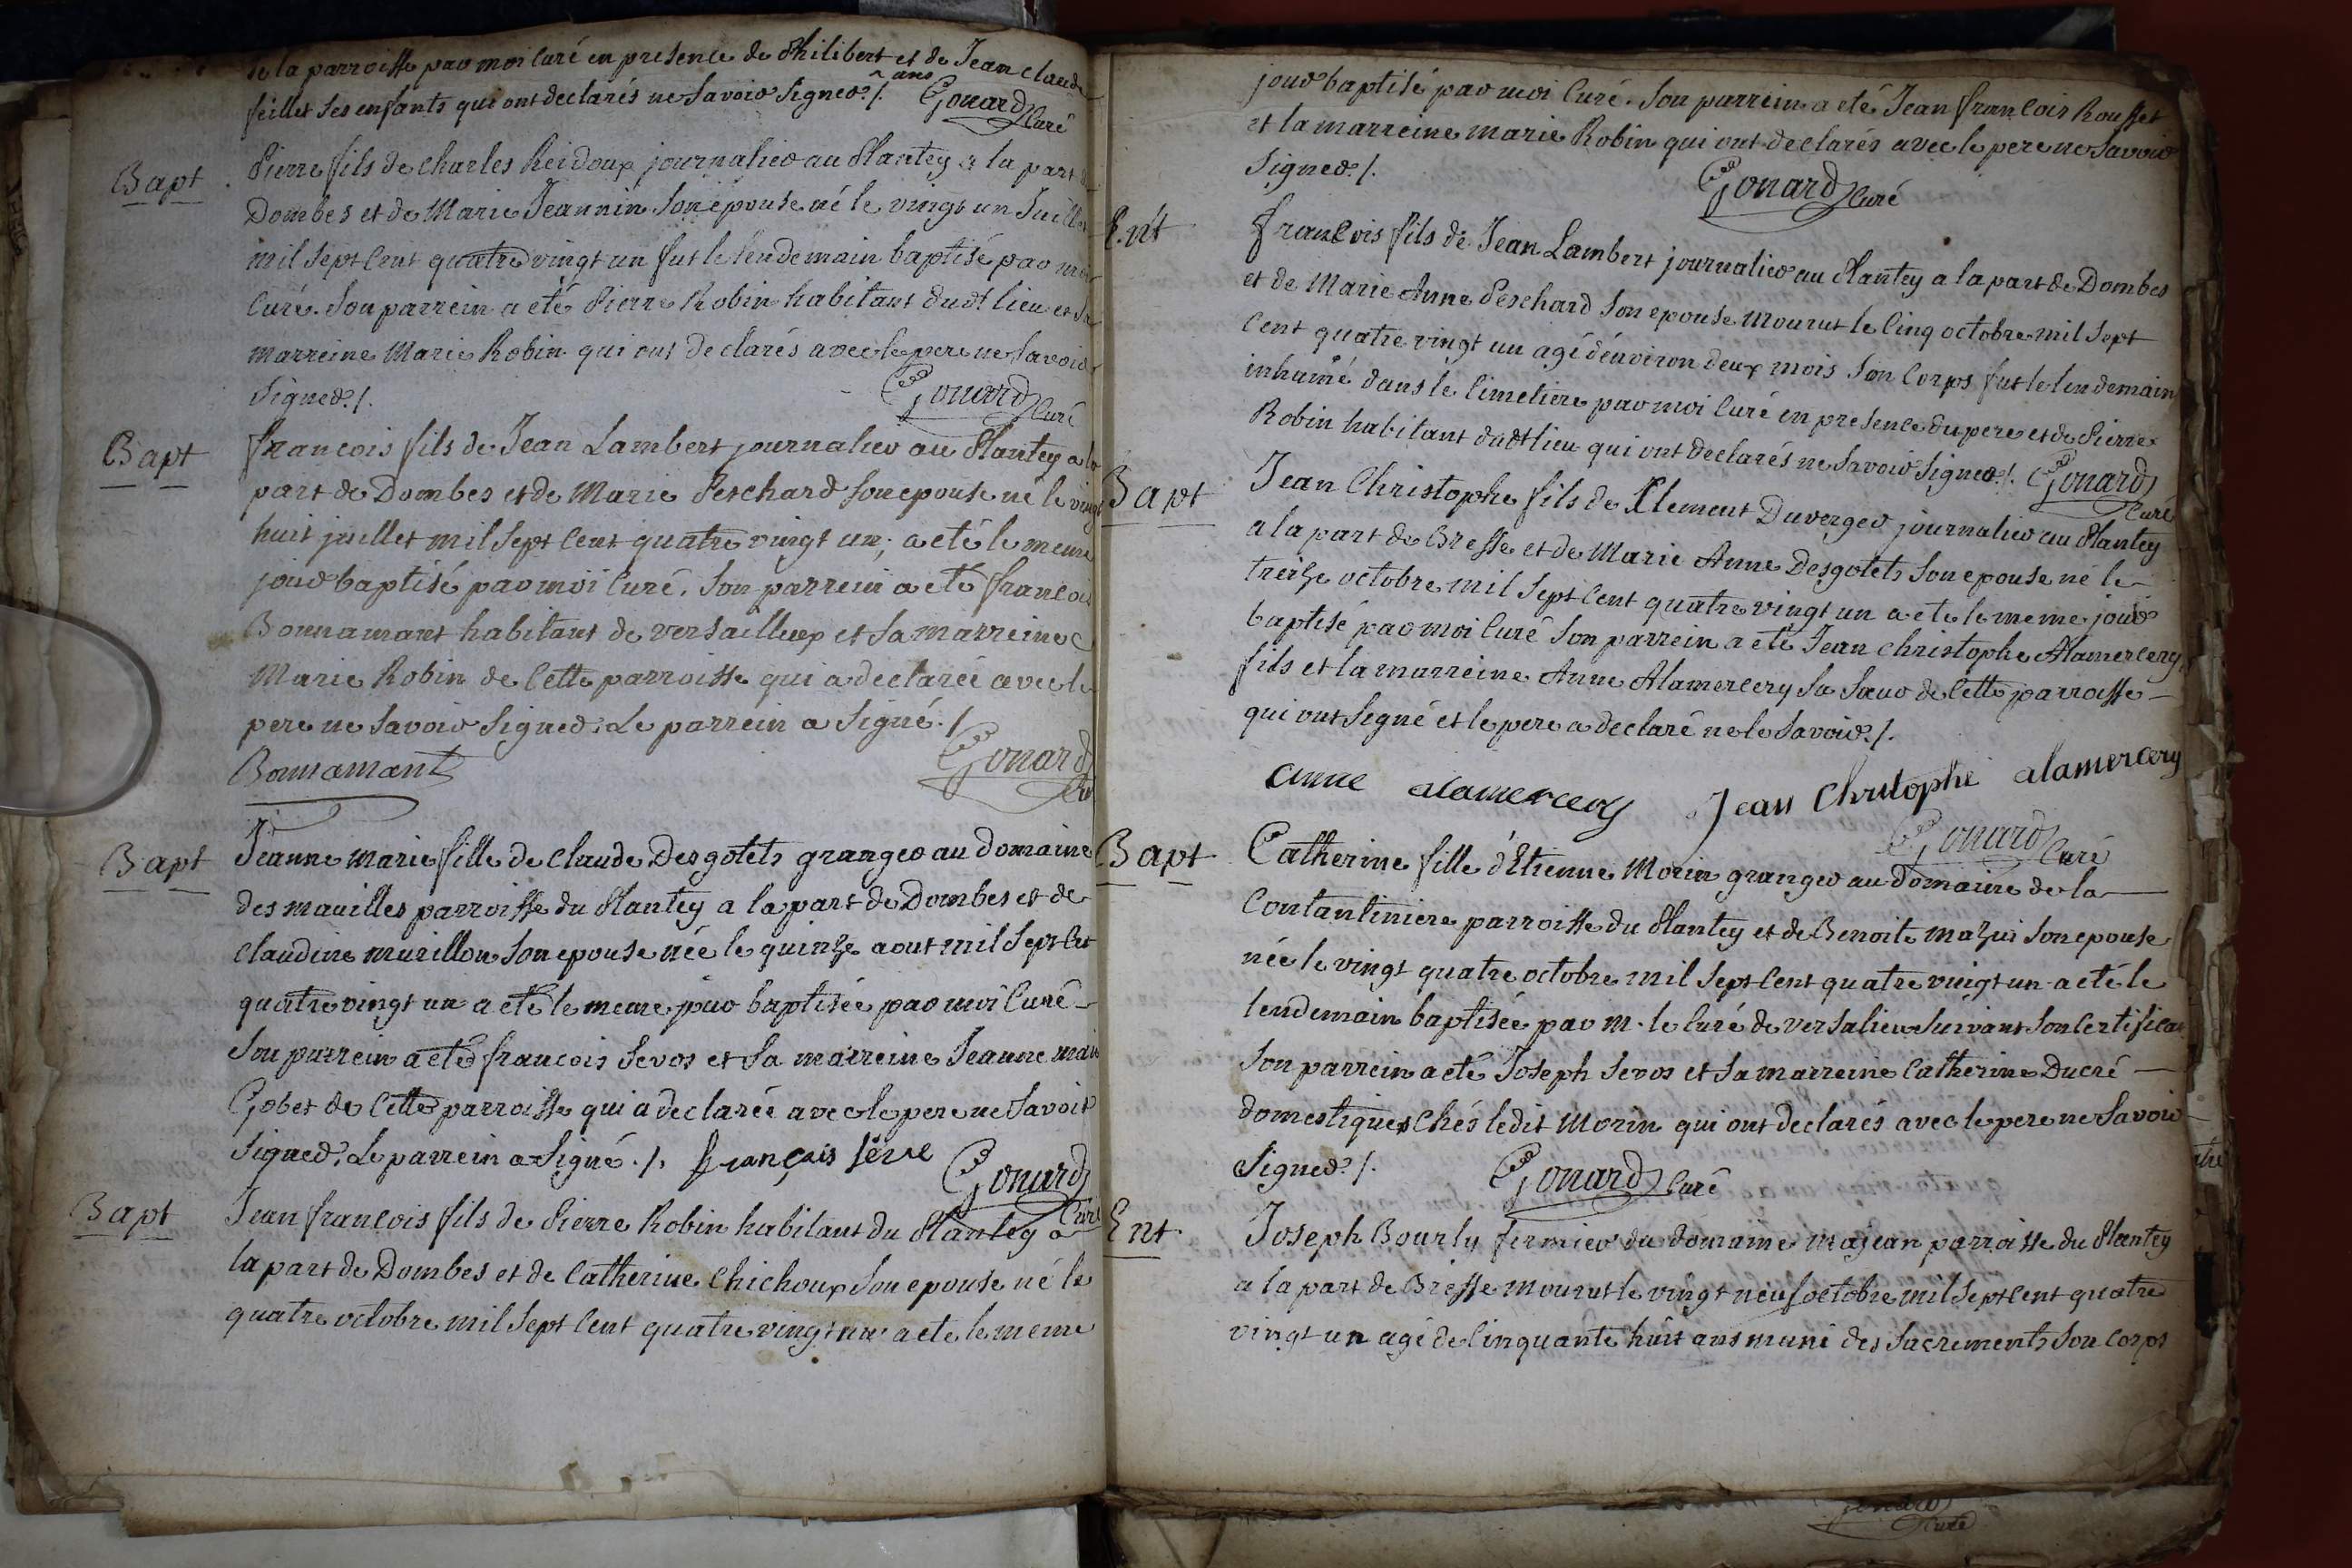 de la parroisse par moi Curé en presence de Philibert et de Jean claude
feillet ses enfants qui ont declarés ne savoir signer ./. Gonard Curé
Bapt
Pierre fils de Charles Reidoux journalier au Plantey a la part de
Dombes et de Marie Jeannin son épouse né le vingt un Juillet
mil sept cent quatre vingt un fut le lendemain baptisé par moi
Curé. Son parrein a eté Pierre Robin habitant dudt lieu et sa
marreine Marie Robin qui ont declarés avec le pere ne savoir
signer ./. Gonard Curé
Bapt
francois fils de Jean Lambert journalier au Plantey a la
part de Dombes et de Marie Peschard son epouse né le vingt
huit juillet mil sept cent quatre vingt un, a eté le meme
jour baptisé par moi Curé. Son parrein a eté francois
Bonnamant habitant de versailleux et sa marreine
Marie Robin de cette parroisse qui a declarée avec le
pere ne savoir signer. Le parrein a signé ./
Bonnamant Gonard Curé
Bapt
Jeanne marie fille de claude Desgotets granger au domaine
des mavilles parroisse du Plantey a la part de Dombes et de
claudine murillon son epouse née le quinze aout mil sept cent
quatre vingt un a eté le meme jour baptisée par moi Curé
Son parrein a eté francois Sevos et sa marreine Jeanne marie
Gobet de cette parroisse qui a declarée avec le pere ne savoir
signer. Le parrein a signé ./. françois seve Gonard Curé
Bapt
Jean francois fils de Pierre Robin habitant du Plantey a
la part de Dombes et de Catherine Chichoux son epouse né le
quatre octobre mil sept cent quatre vingt un a eté le meme
jour baptisé par moi Curé. Son parrein a eté Jean francois Rousset
et la marreine marie Robin qui ont declarés avec le pere ne savoir
signer ./. Gonard Curé
Ent
francois fils de Jean Lambert journalier au Plantey a la part de Dombes
et de Marie Anne Peschard son epouse mourut le cinq octobre mil sept
cent quatre vingt un agé d'environ deux mois son corps fut le lendemain
inhumé dans le cimetiere par moi Curé en presence du pere et de Pierre
Robin habitant dudt lieu qui ont declarés ne savoir signer ./. Gonard Curé
Bapt
Jean Christophe fils de Clement Duverger journalier au Plantey
a la part de Bresse et de Marie Anne Desgotets son epouse né le
treize octobre mil sept cent quatre vingt un a eté le meme jour
baptisé par moi Curé son parrein a eté Jean christophe Alamercery
fils et la marreine Anne Alamercery sa sœur de cette parroisse
qui ont signé et le pere a declaré ne le savoir ./.
anne alamercery Jean Christophe alamercery
Gonard Curé
Bapt
Catherine fille d'Etienne Morin granger au domaine de la
Contantiniere parroisse du Plantey et de Benoite mazui son epouse
née le vingt quatre octobre mil sept cent quatre vingt un a eté le
lendemain baptisée par m. le Curé de versalieu suivant son certificat
Son parrein a eté Joseph Sevos et sa marreine Catherine Ducré
domestiques chés ledit Morin qui ont declarés avec le pere ne savoir
signer ./. Gonard Curé
Ent
Joseph Bourly fermier du domaine majean parroisse du Plantey
a la part de Bresse mourut le vingt neuf octobre mil sept cent quatre
vingt un agé de cinquante huit ans muni des sacrements son corps
Gonard
Curé